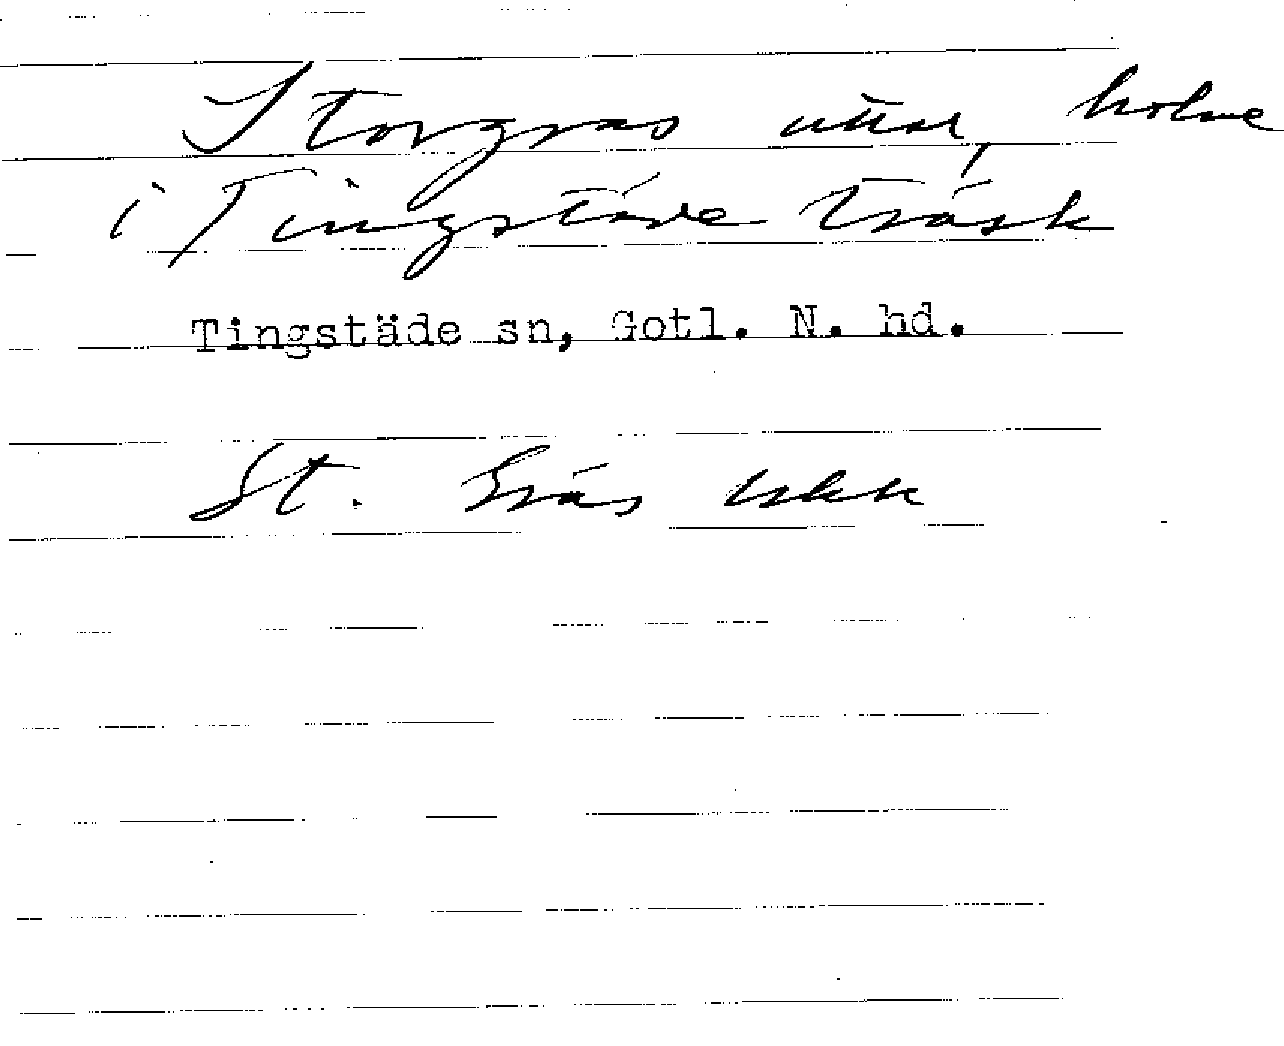 Storgras uttar, holme
i Tingstäde träsk
Tingstäde sn, Gotl. N. hd.
St. Gräs